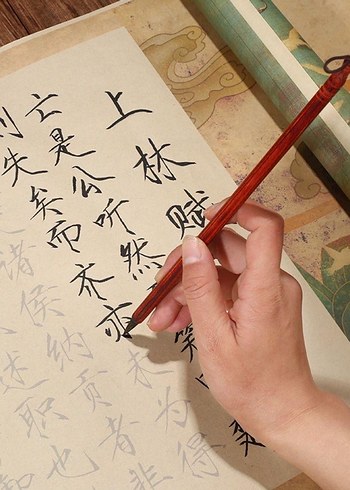 上林赋
亡是公听然笑楚
则失矣而齐亦未为得
诸侯纳贡者非
述职也